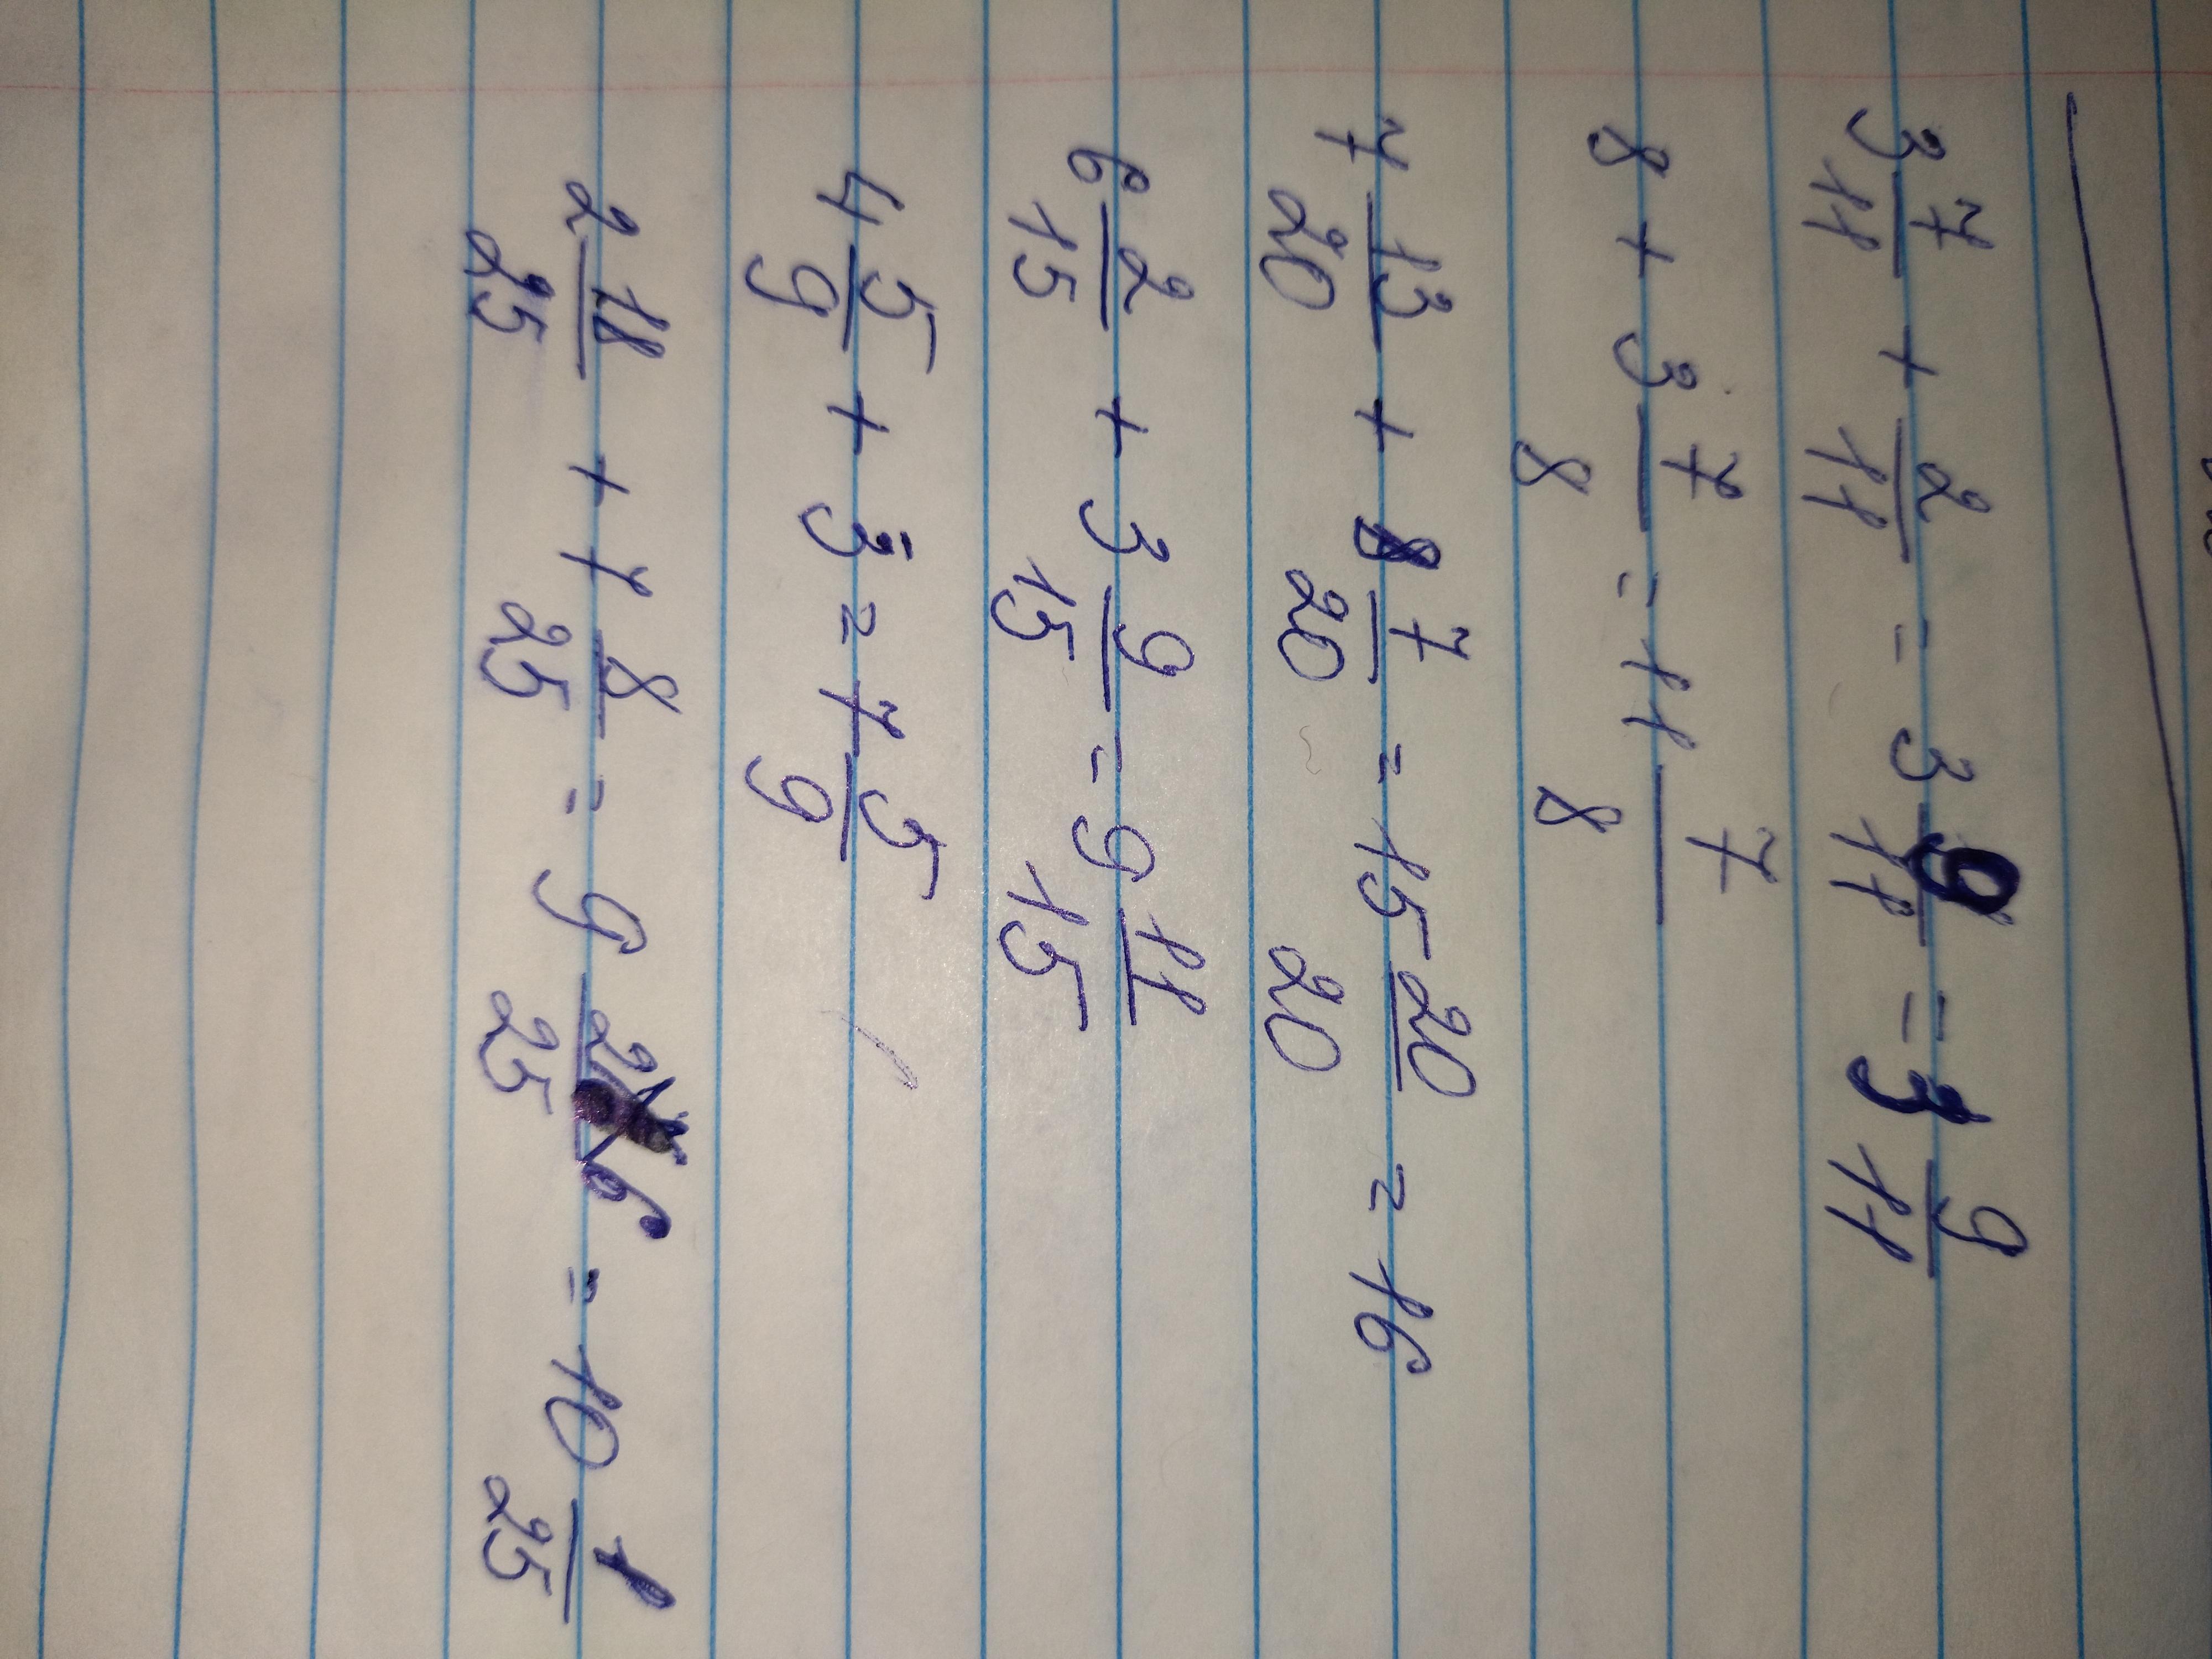 3 7/11 + 2/11 = 3 9/11 = 3 9/11
8 + 3 7/8 = 11 7/8
7 13/20 + 8 7/20 = 15 20/20 = 16
6 2/15 + 3 9/15 = 9 11/15
4 5/9 + 3 = 7 5/9
2 18/25 + 7 8/25 = 9 26/25 = 10 1/25